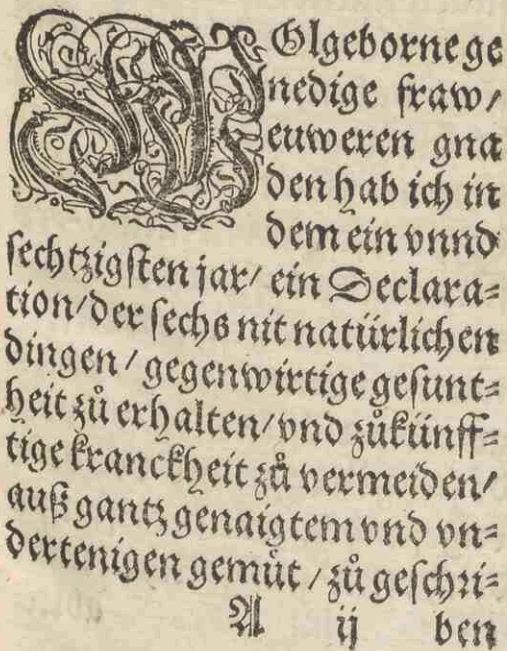 WOlgeborne ge
nedige fraw/
euweren gna
den hab ich in
dem ein vnnd
sechtzigsten jar/ ein Declara⸗
tion/der sechs nit natürlichen
dingen/ gegenwirtige gesunt⸗
heit zů erhalten/vnd zůkünff⸗
tige kranckheit zů vermeiden/
auß gantz genaigtem vnd vn⸗
dertenigen gemůt/ zů geschri⸗
A ij ben